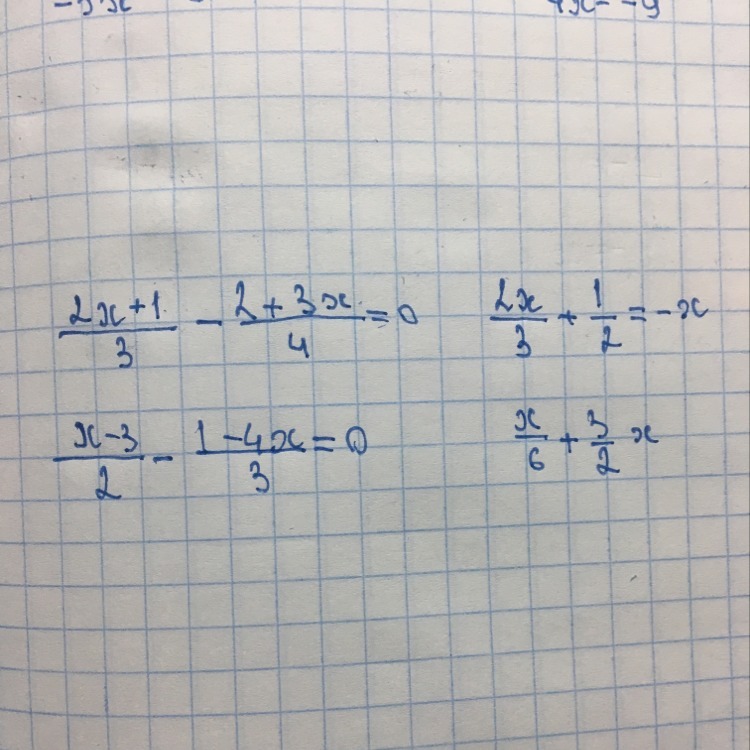 (2x+1)/3 - (2+3x)/4 = 0
2x/3 + 1/2 = -x
(x-3)/2 - (1-4x)/3 = 0
x/6 + 3/2 x